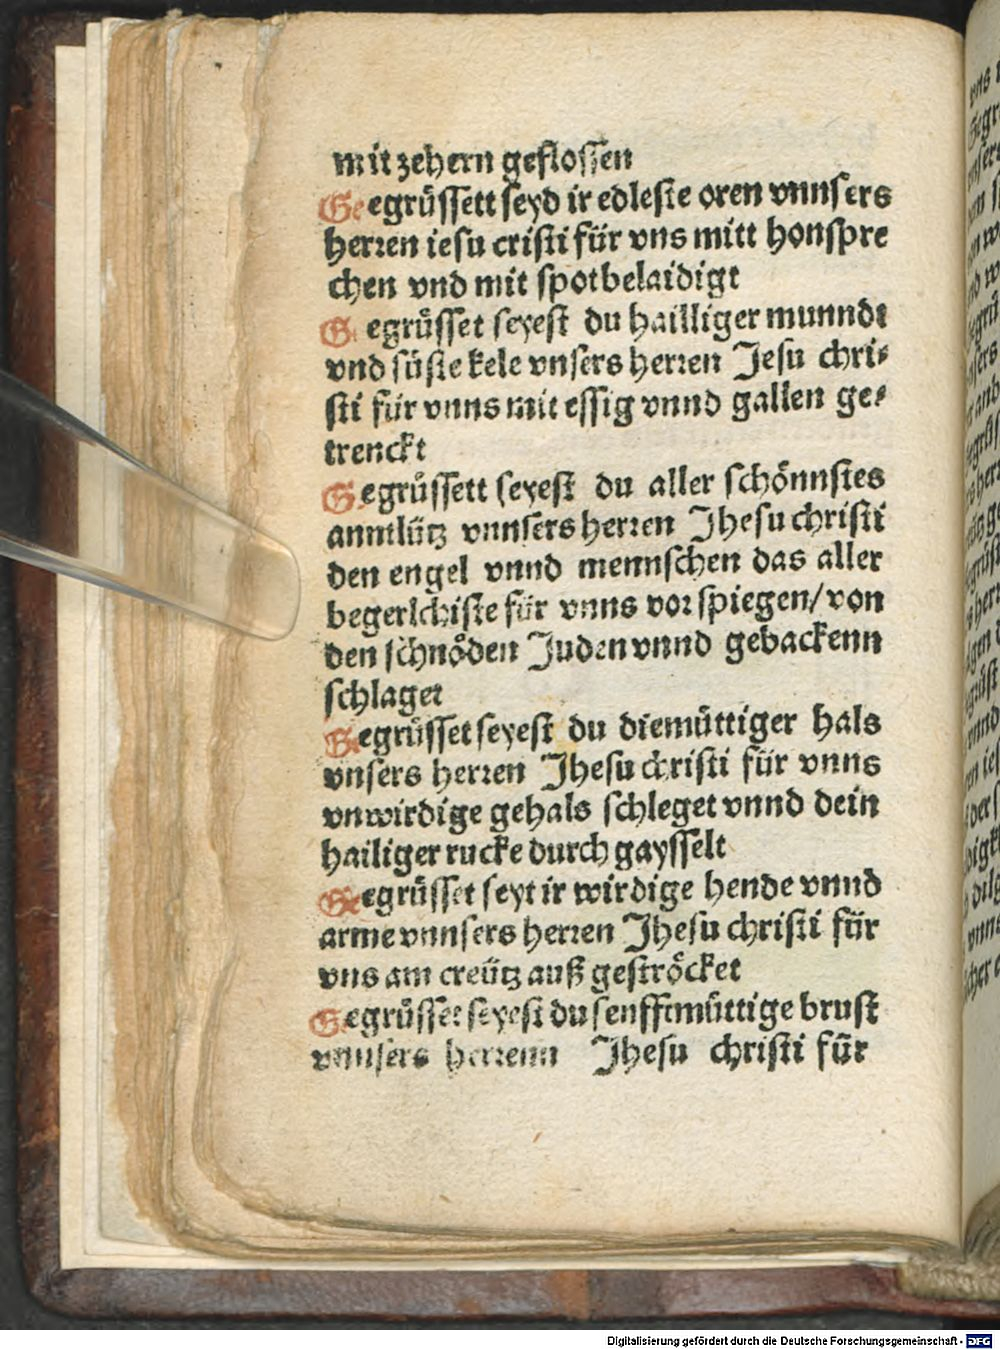 mit zehern geflossen
Gegrüssett seyd ir edleste oren vnnsers
herren iesu cristi für vns mitt honspre
chen vnd mit spotbelaidigt
Gegrüsset seyest du hailliger munndt
vnd süste kele vnsers herren Jesu chri⸗
sti für vnns mit essig vnnd gallen ge⸗
trenckt
Gegrüssett seyest du aller schönnstes
anntlütz vnnsers herren Jhesu christi
den engel vnnd mennschen das aller
begerlchiste für vnns vor spiegen/ von
den schnöden Juden vnnd gebackenn
schlaget
Gegrüsset seyest du diemüttiger hals
vnsers herren Jhesu christi für vnns
vnwirdige gehals schleget vnnd dein
hailiger rucke durch gaysselt
Gegrüsset seyt ir wirdige hende vnnd
arme vnnsers herren Jhesu christi für
vns am creütz auß geströcket
Gegrüsset seyest du senfftmüttige brust
vnnsers herrenn Jhesu christi für
Digitalisierung gefördert durch die Deutsche Forschungsgemeinschaft - DFG